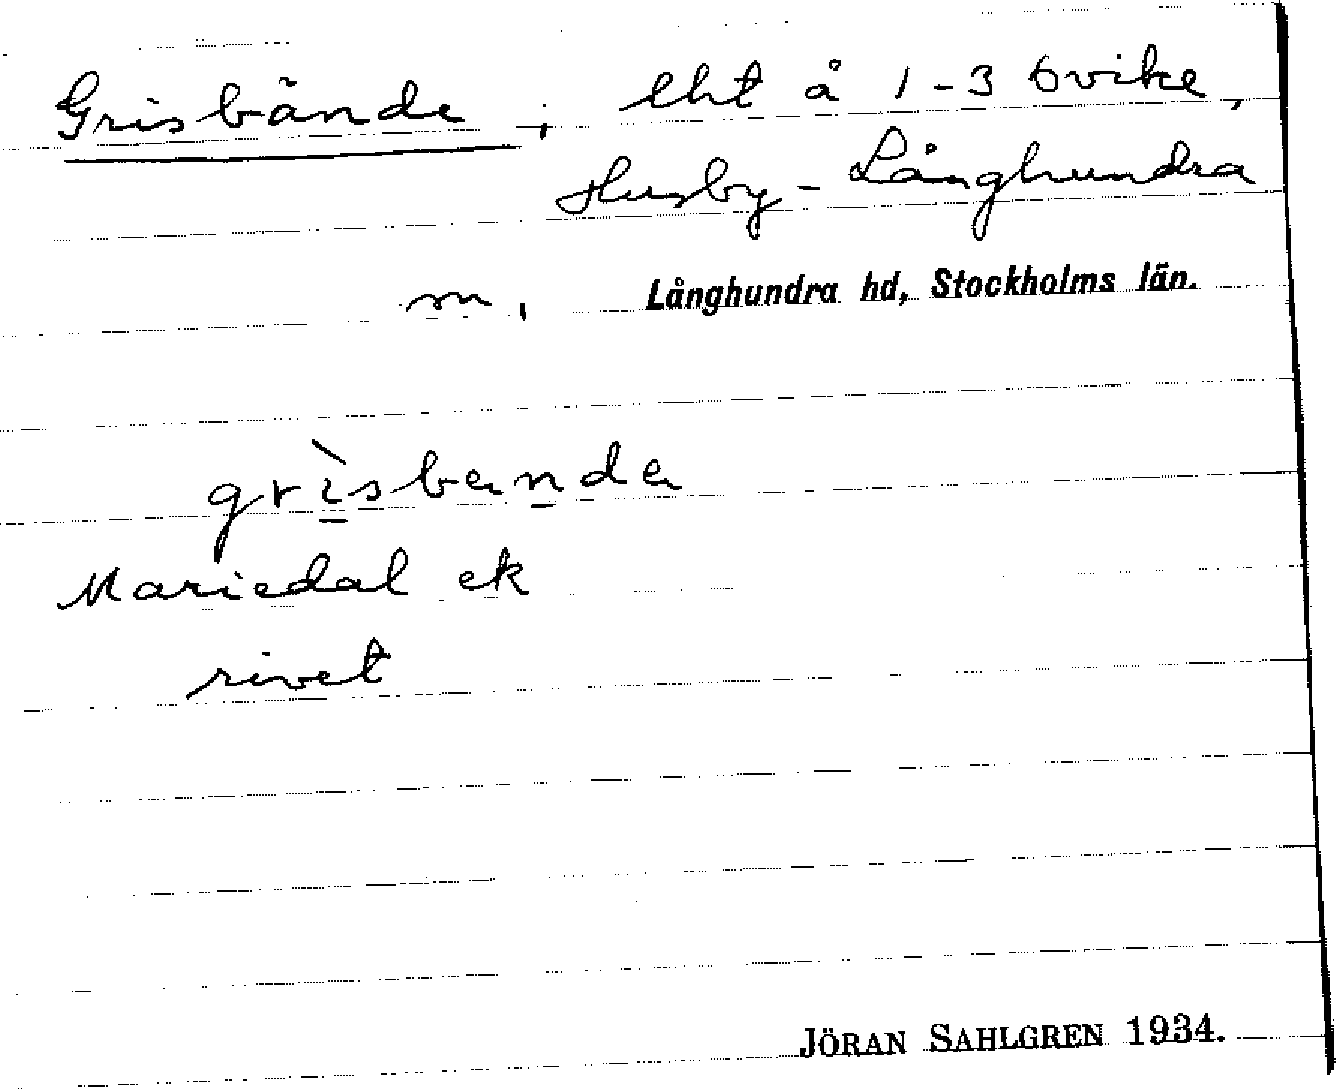 Grisbände, lht å 1-3 Övike,
Husby-Långhundra
sn, Långhundra hd, Stockholms län.
grìsbända
Mariedal ek
rivet
JÖRAN SAHLGREN 1934.